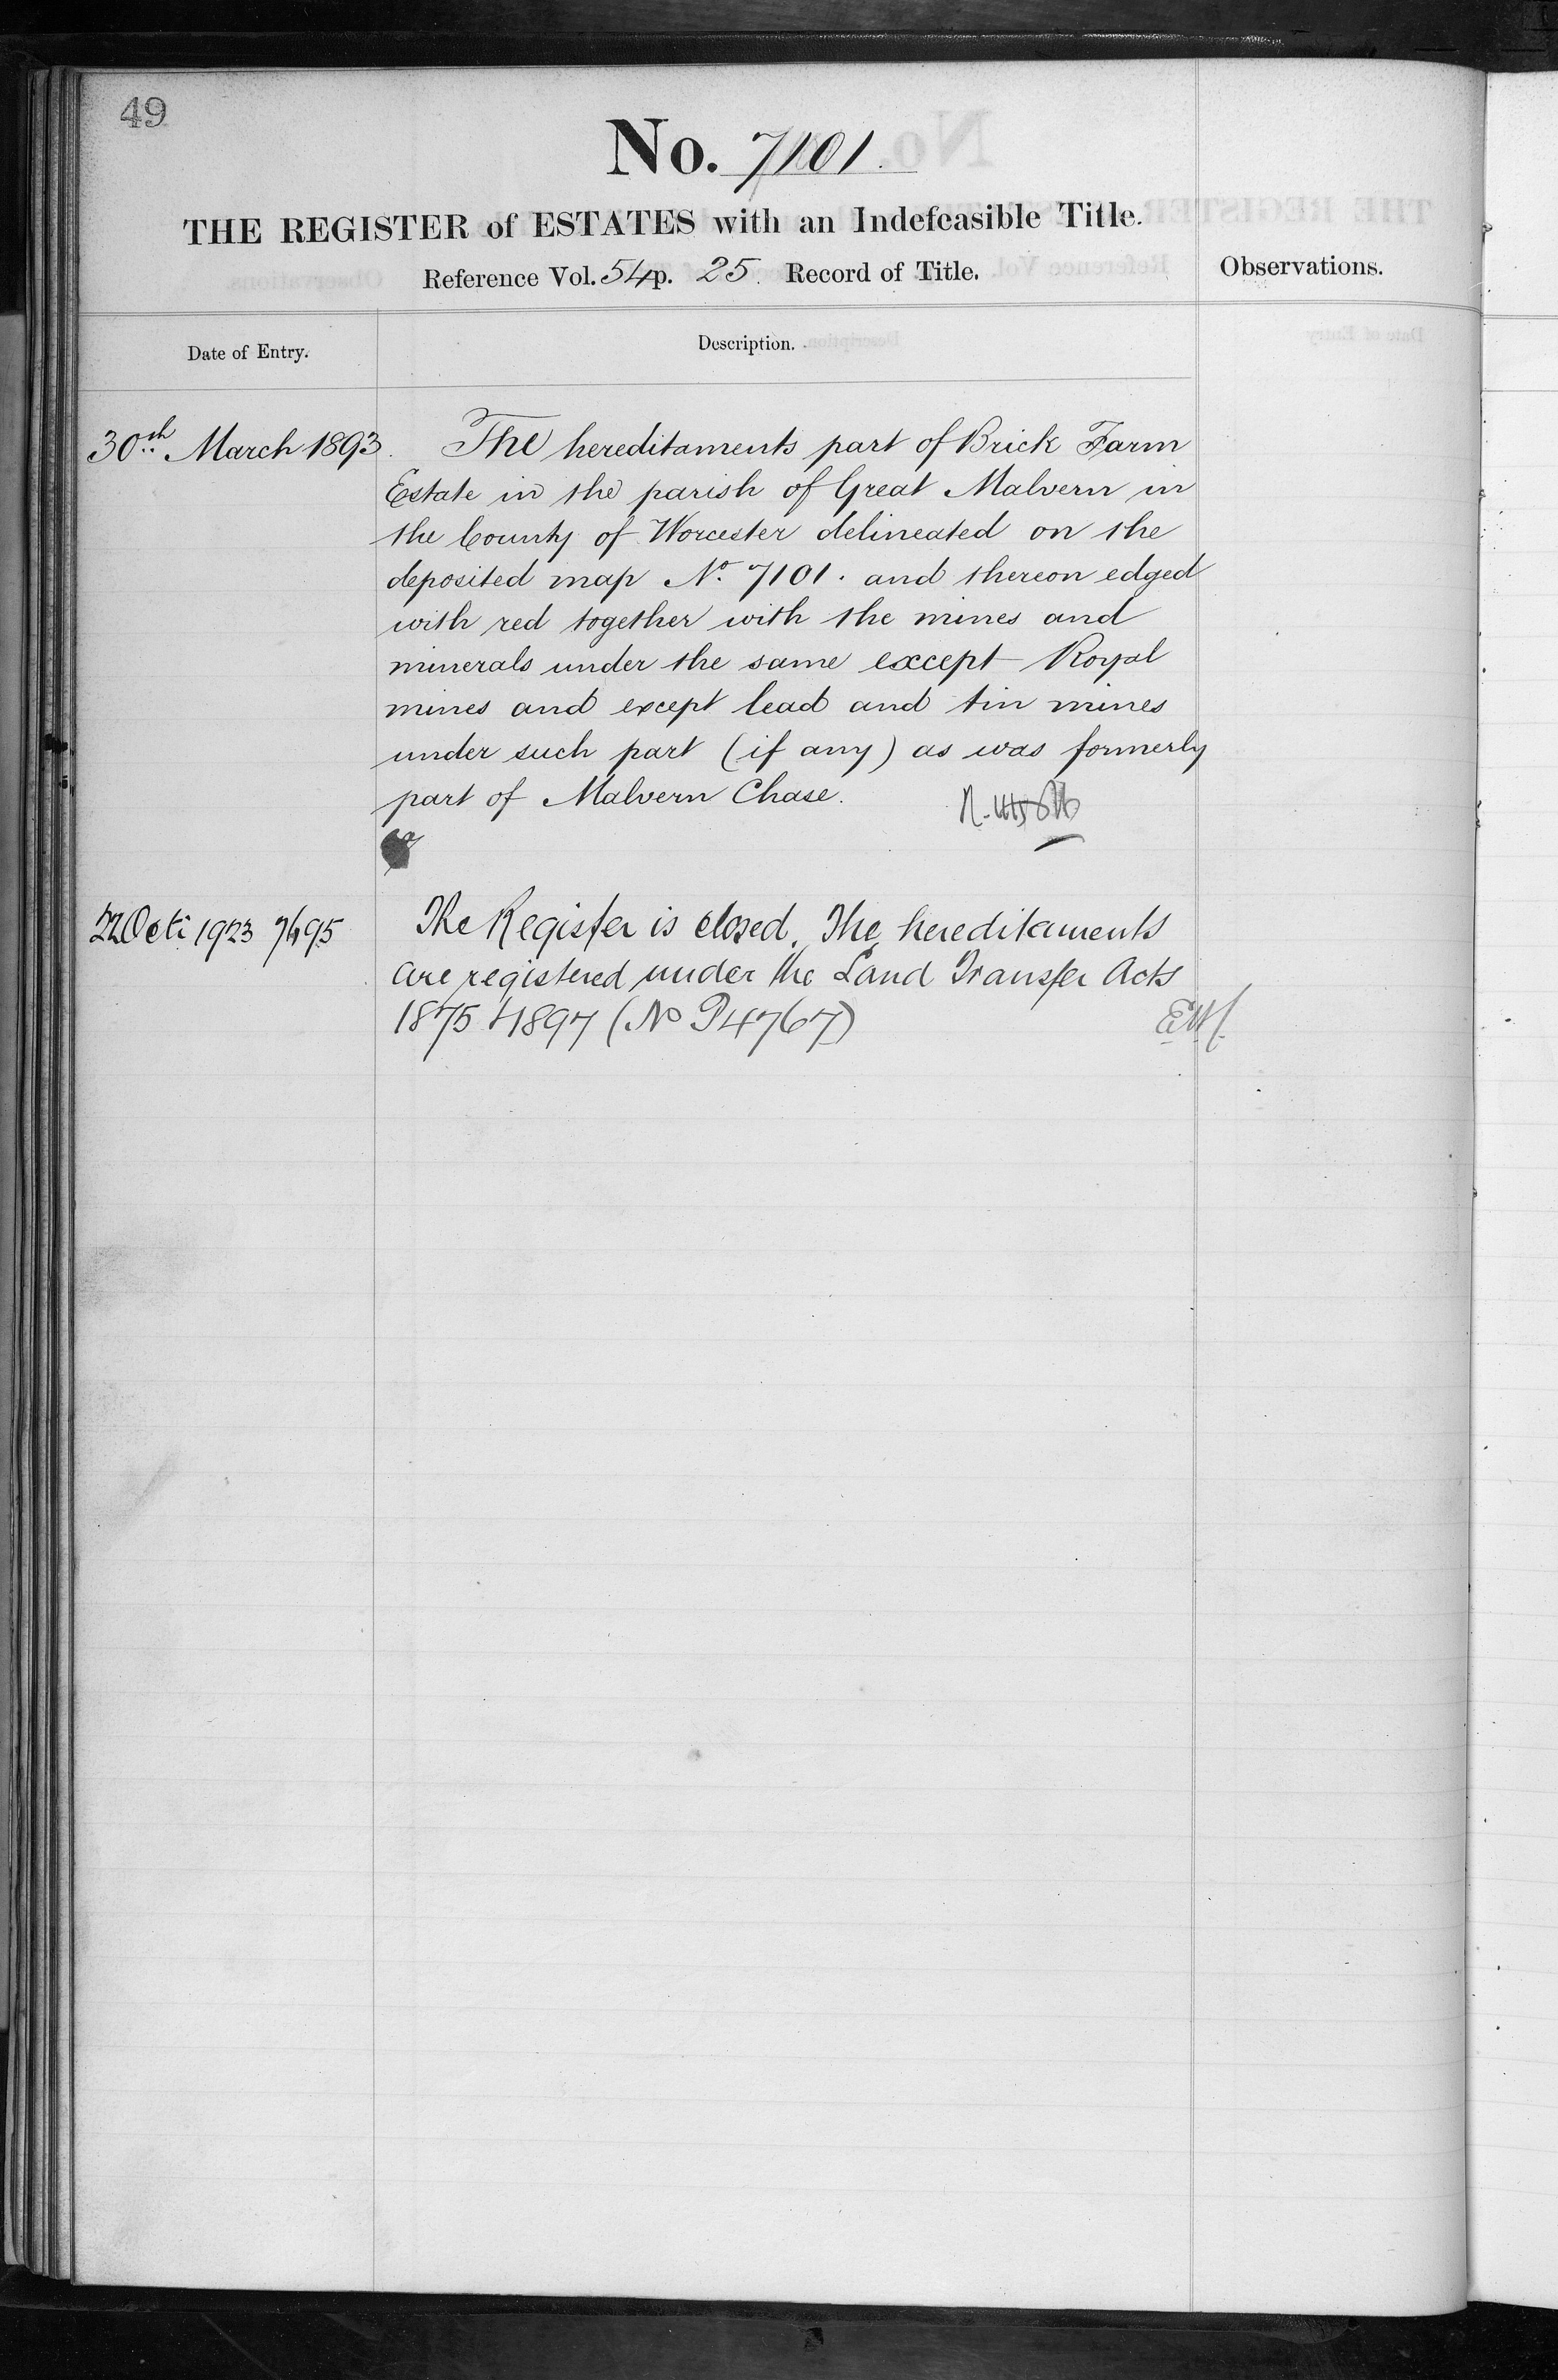 49
No. 7101.
THE REGISTER of ESTATES with an Indefeasible Title.
Reference Vol. 54 p. 25. Record of Title.
Observations.
Date of Entry.
Description.
30th March 1893.
The hereditaments part of Brick Farm
Estate in the parish of Great Malvern in
the County of Worcester delineated on the
deposited map No. 7101. and thereon edged
with red together with the mines and
minerals under the same except Royal
mines and except lead and tin mines
under such part (if any) as was formerly
part of Malvern Chase.
22 Oct: 1923 7495
The Register is closed. The hereditaments
are registered under the Land Transfer Acts
1875 & 1897 (No P4767)